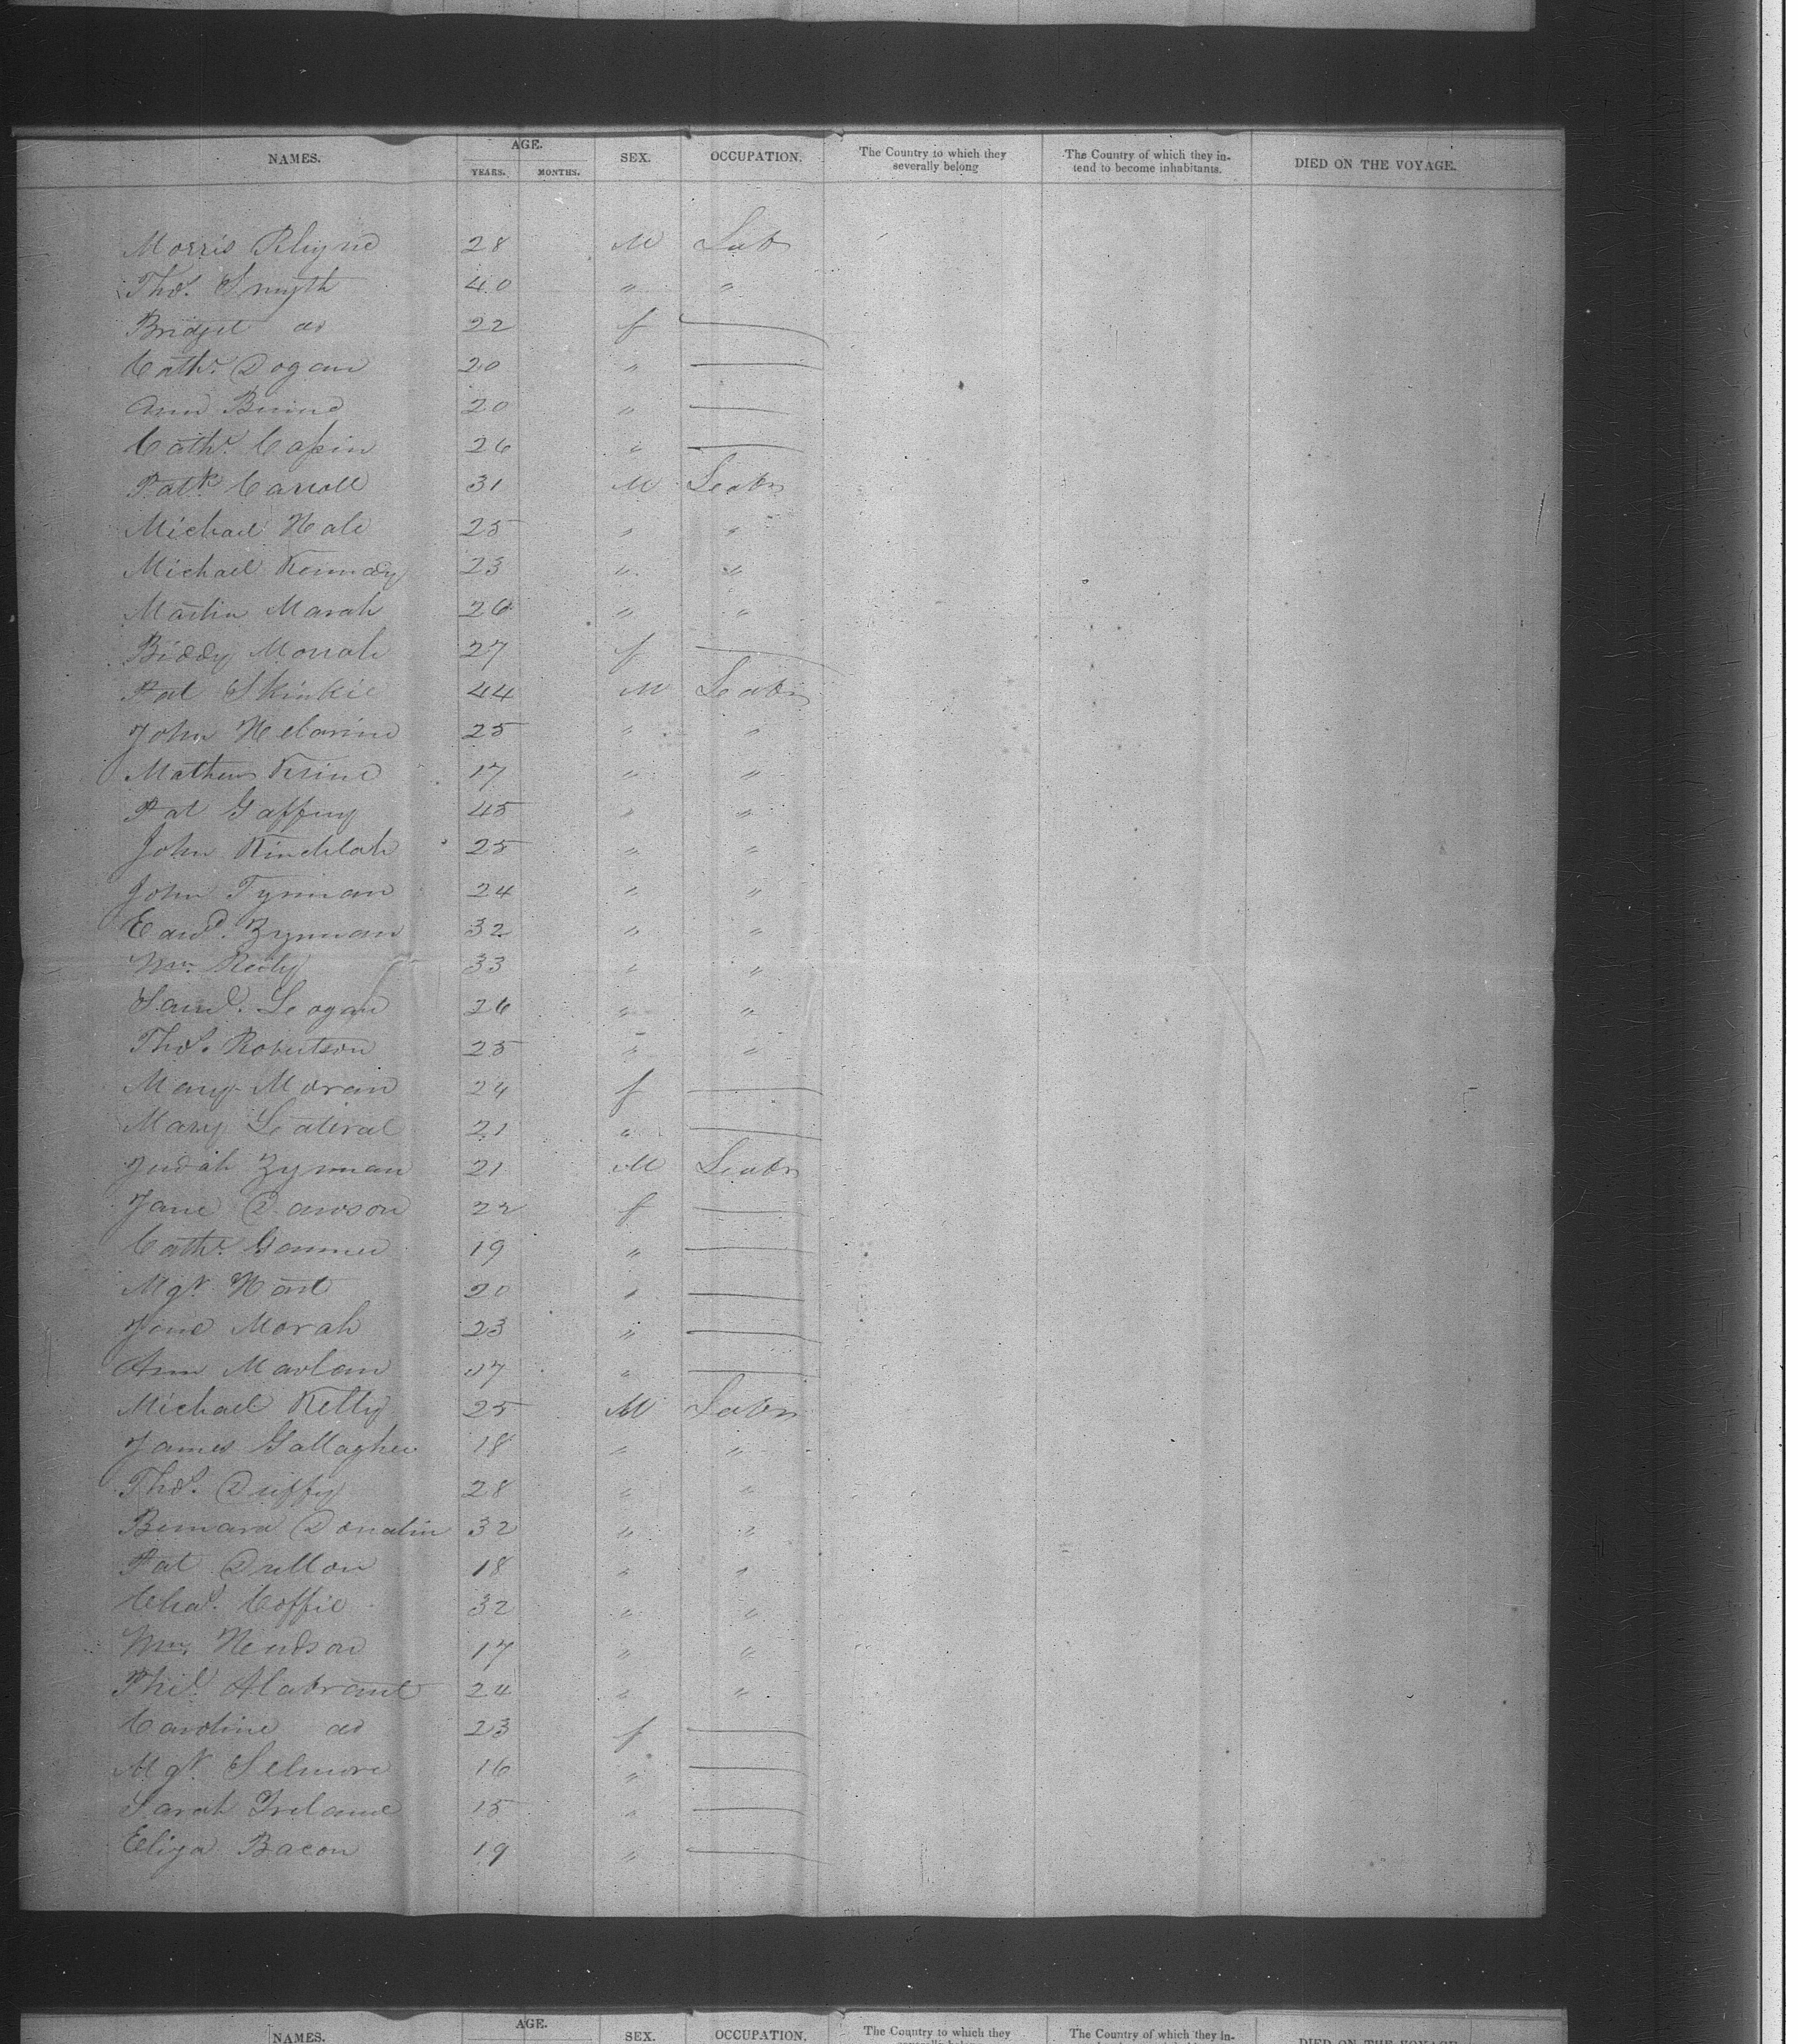 NAMES. AGE. SEX. OCCUPATION. The Country to which they severally belong The Country of which they in- tend to become inhabitants. DIED ON THE VOYAGE.
YEARS. MONTHS.
Morris Rhyne 28 M Lab
Thos. Smyth 40 " "
Bridget do 22 f
Cathr. Dogan 20 "
Ann 20 "
Cathr. 26 "
Patk. Carroll 31 M Labr
Michael Hale 25 " "
Michael Kennedy 23 " "
Martin Marah 26 " "
Biddy Morrah 27 f
Pat Skinkie 44 M Labr
John 25 " "
Mathew 17 " "
Pat Gaffeny 45 " "
John Kindelah 25 " "
John Tynman 24 " "
Edwd. Zynman 32 " "
Wm. Reily 33 " "
Saml. Logan 26 " "
Thos. Robertson 25 " "
Mary Moran 24 f
Mary 21 "
Judah Zynman 21 M Labr
Jane Dawson 22 f
Cathr. 19 "
Mgt. Hart 20 "
Jane Morah 23 "
Ann 17 "
Michael Kelly 25 M Labr
James Gallagher 18 " "
Thos. Duffy 28 " "
Bernard Donalin 32 " "
Pat Dullon 18 " "
Chas. Coffie 32 " "
Wm. Hudson 17 " "
Phil. Alabrant 24 " "
Caroline do 23 f
Mgt. Selmore 16 "
Sarah Ireland 15 "
Eliza Bacon 19 "
NAMES. AGE. SEX. OCCUPATION. The Country to which they The Country of which they in- DIED ON THE VOYAGE